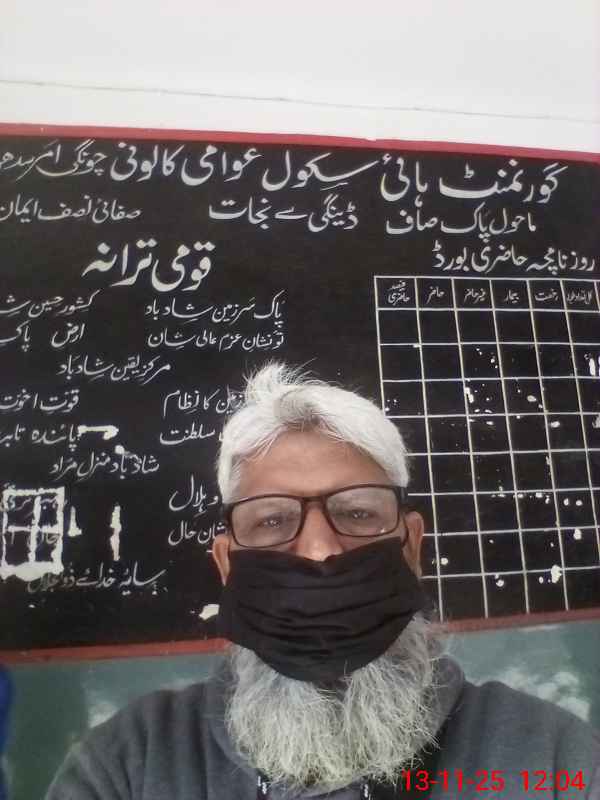 گورنمنٹ ہائی سکول عوامی کالونی چونگی امر سدھو
ماحول پاک صاف ڈینگی سے نجات
صفائی نصف ایمان
روزنامچہ حاضری بورڈ
رخصت بیمار غیرحاضر حاضر فیصد حاضری
قومی ترانہ
پاک سرزمین شاد باد کشور حسین
تو نشان عزم عالی شان ارض پاک
مرکز یقین شاد باد
کا نظام قوت اخوت
سلطنت پائندہ
شاد باد منزل مراد
و ہلال
شان حال
سایۂ خدائے ذوالجلال
13-11-25 12:04